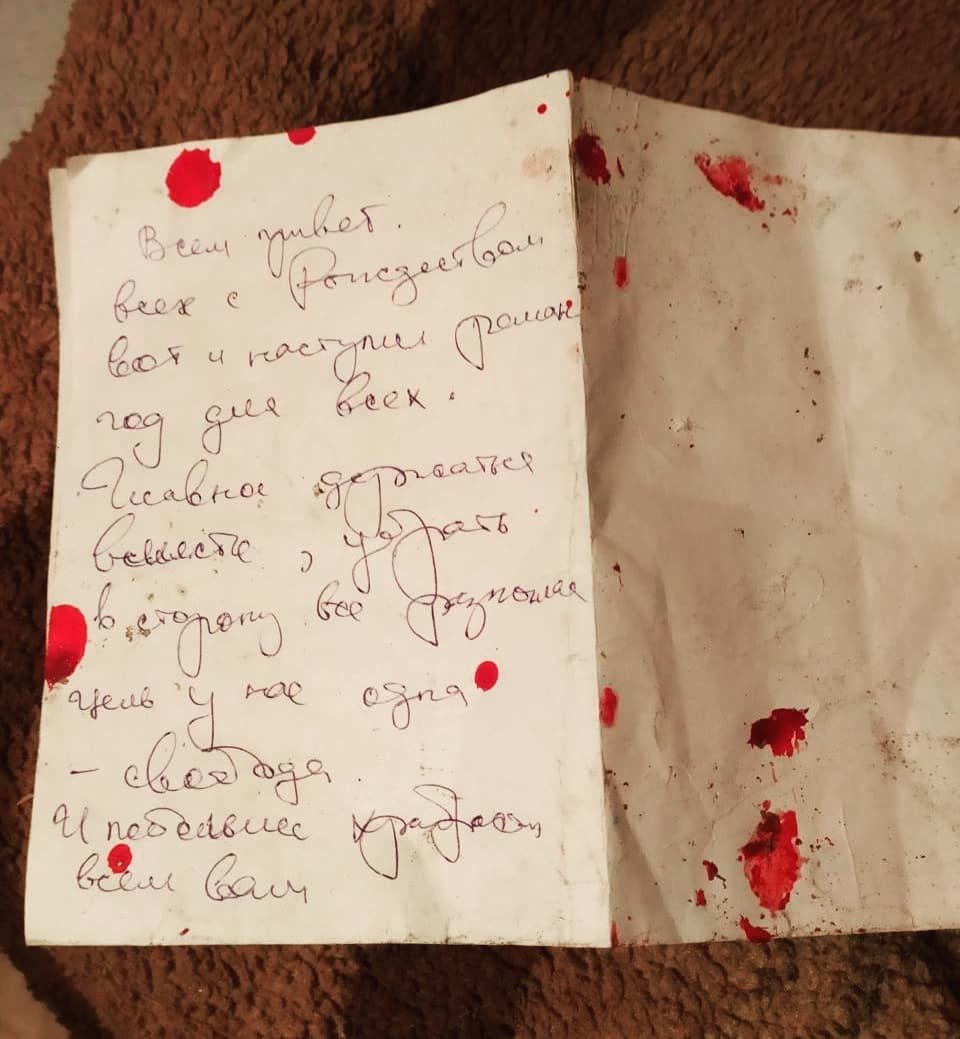 Всем привет.
всех с Рождеством
вот и наступил роман
год для всех.
Главное держаться
вместе, убрать
в сторону все
цель у нас одна
- свобода.
И побольше храбрости
всем вам